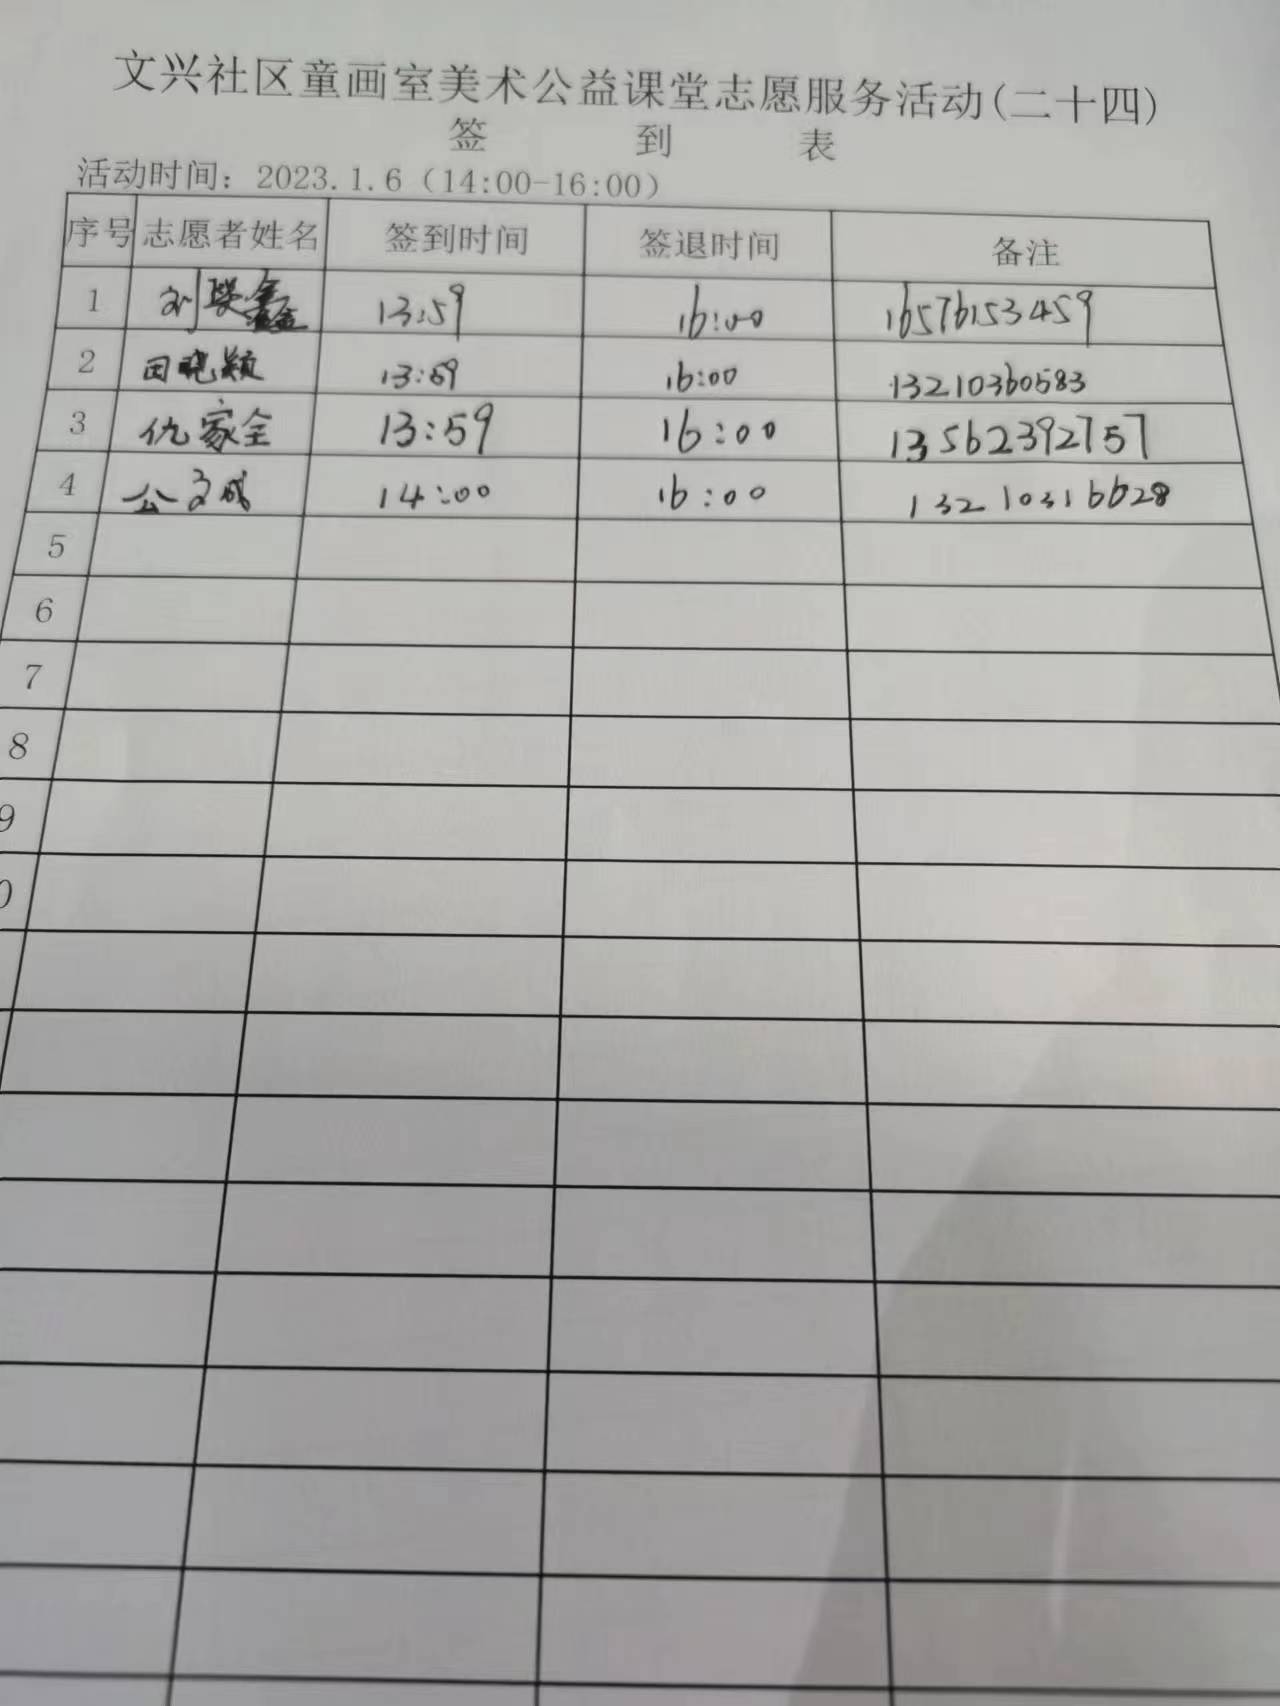 文兴社区童画室美术公益课堂志愿服务活动(二十四)
签 到 表
活动时间：2023.1.6（14:00-16:00）
序号 志愿者姓名 签到时间 签退时间 备注
1 刘 鑫 13:59 16:00 16576153459
2 田晓颖 13:59 16:00 13210360583
3 仇家全 13:59 16:00 13562392757
4 公文成 14:00 16:00 13210316628
5
6
7
8
9
0